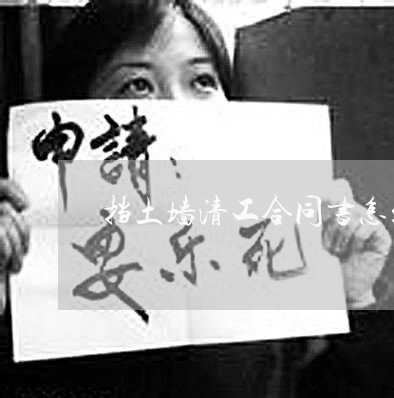 申請:
挡土墙清工合同书怎
要乐死